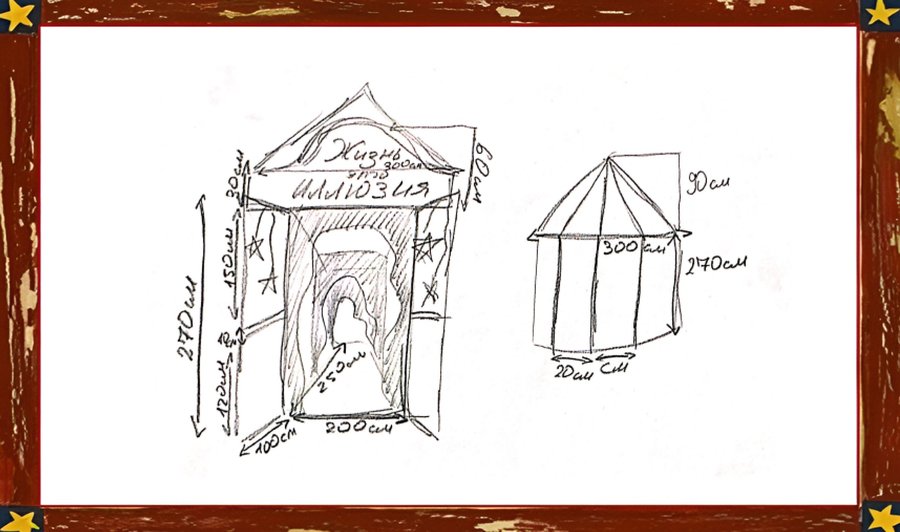 Жизнь
300см
есть
иллюзия
30см
60см
150см
270см
120см
250см
100см
200см
90см
300см
270см
20см
см